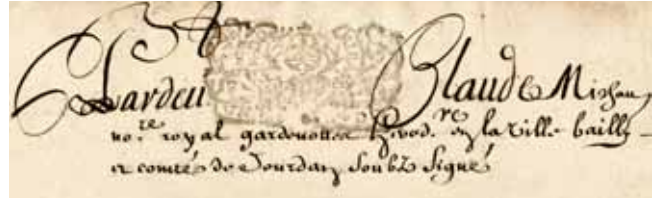 Pardeu Claude Mishau
no.re royal gardenottes hered.re en la ville bailly
et comté de Dourdan soubz signé